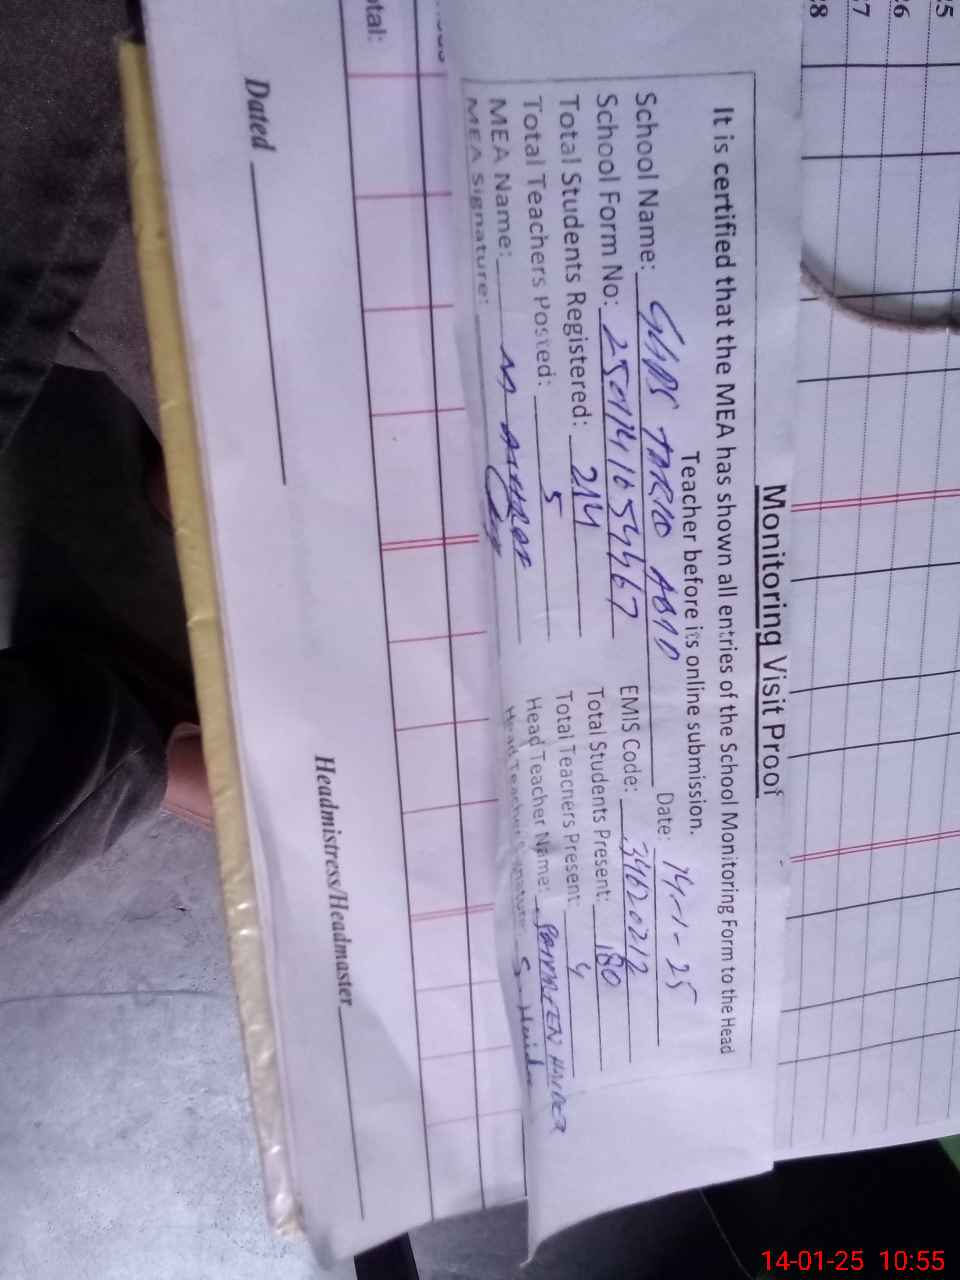 Monitoring Visit Proof
It is certified that the MEA has shown all entries of the School Monitoring Form to the Head
Teacher before its online submission.
Date: 14-1-25
School Name: GHPS TARIQ ABAD
School Form No: EMIS Code: 34620212
Total Students Registered: 214 Total Students Present: 180
Total Teachers Posted: 5 Total Teachers Present: 4
MEA Name: Head Teacher Name: HAIDER
MEA Signature: Head Teacher Signature S. Haider
otal:
Dated Headmistress/Headmaster
5
26
27
28
14-01-25 10:55